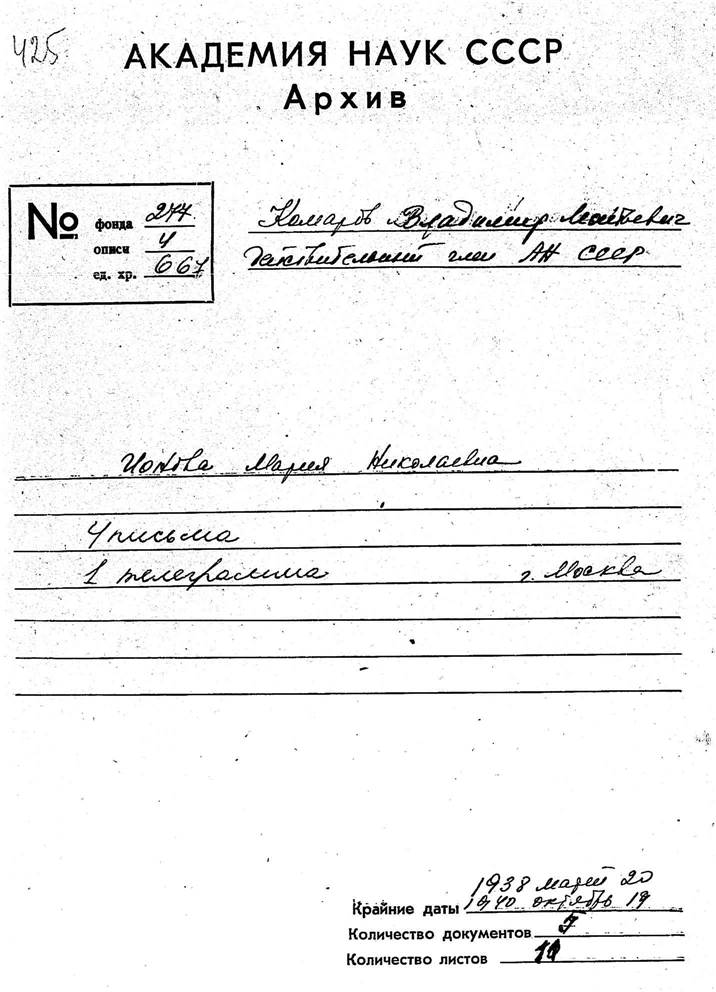 425
АКАДЕМИЯ НАУК СССР
Архив
№ фонда 277
описи 4
ед. хр. 667
Комаров Владимир Леонтьевич
действительный член АН СССР
Ионова Мария Николаевна
4 письма
1 телеграмма г. Москва
1938 март 20
Крайние даты 1940 октябрь 19
Количество документов 5
Количество листов